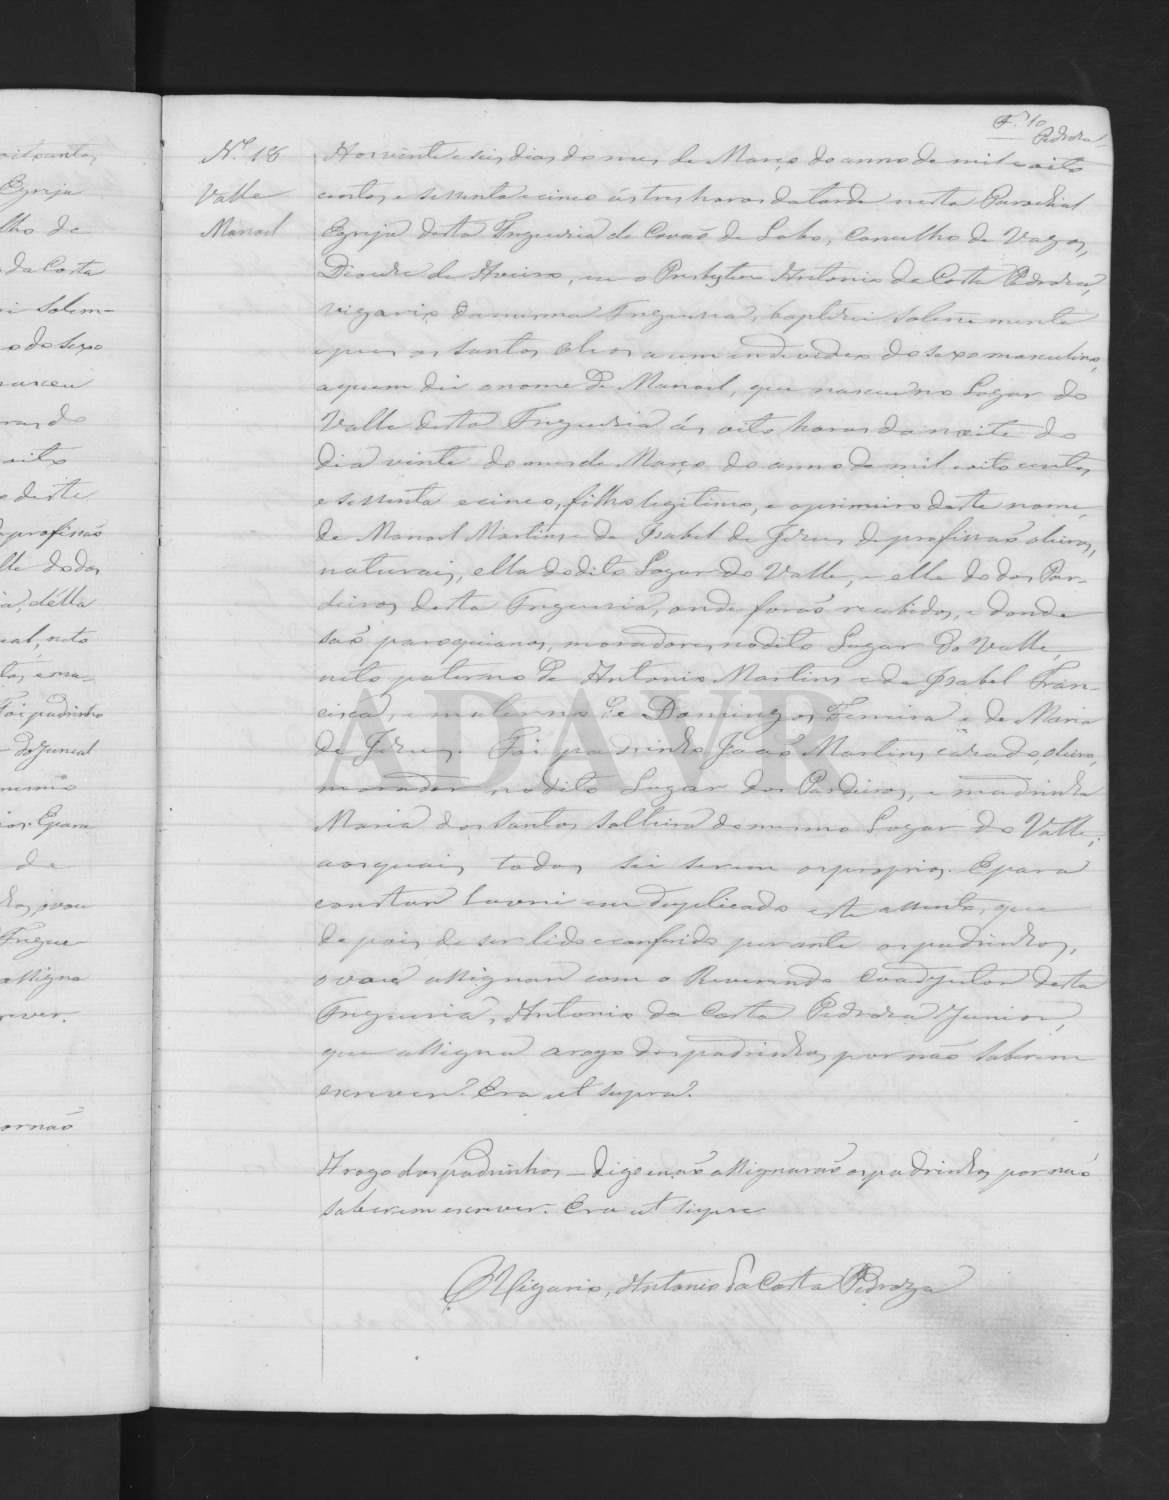 F. 10
Pedroza
Nº 18
Valle
Manoel
Aos vinte e seis dias do mes de Março do anno de mil e oito
centos e sessenta e cinco ás tres horas da tarde nesta Parochial
Egreja desta Freguezia de Covaõ do Lobo, Concelho de Vagos,
Diocese de Aveiro, eu o Presbytero Antonio da Costa Pedroza,
vigario da mesma Freguezia, baptizei solemnemente
e puz os santos oleos a um individuo do sexo masculino,
a quem dei o nome de Manoel, que nasceu no Logar do
Valle desta Freguezia ás oito horas da noite do
dia vinte do mes de Março do anno de mil oito centos
e sessenta e cinco, filho legitimo, e o primeiro deste nome,
de Manoel Martins e de Izabel de Jezus de profissaõ oleiros,
naturais, ella do dito Logar do Valle, e elle do dos Par-
deiros desta Freguezia, onde foraõ recebidos, e donde
saõ paroquianos, moradores no dito Lugar do Valle,
neto paterno de Antonio Martins e de Izabel Fran-
cisca, e materno de Domingos Ferreira e de Maria
de Jezus. Foi padrinho Joaõ Martins cazado, oleiro,
morador no dito Lugar dos Pardieiros, e madrinha
Maria dos Santos solteira do mesmo Logar do Valle,
aos quais todos sei serem os proprios. E para
constar lavrei em duplicado este assento, que
depois de ser lido e conferido perante os padrinhos,
o vou assignar com o Reverendo Coadjutor desta
Freguezia, Antonio da Costa Pedroza Junior,
que assigna a rogo dos padrinhos por naõ saberem
escrever. Era ut supra.
A rogo dos padrinhos — digo naõ assignaraõ os padrinhos por naõ
saberem escrever. Era ut supra
O Vigario, Antonio da Costa Pedroza
ADAVR
Egreja
lho de
da Costa
solem-
o do sexo
nasceu
oito
deste
profissaõ
della
neto
Foi padrinho
E para
de
vou
Fregue-
assigna
ever.
por naõ